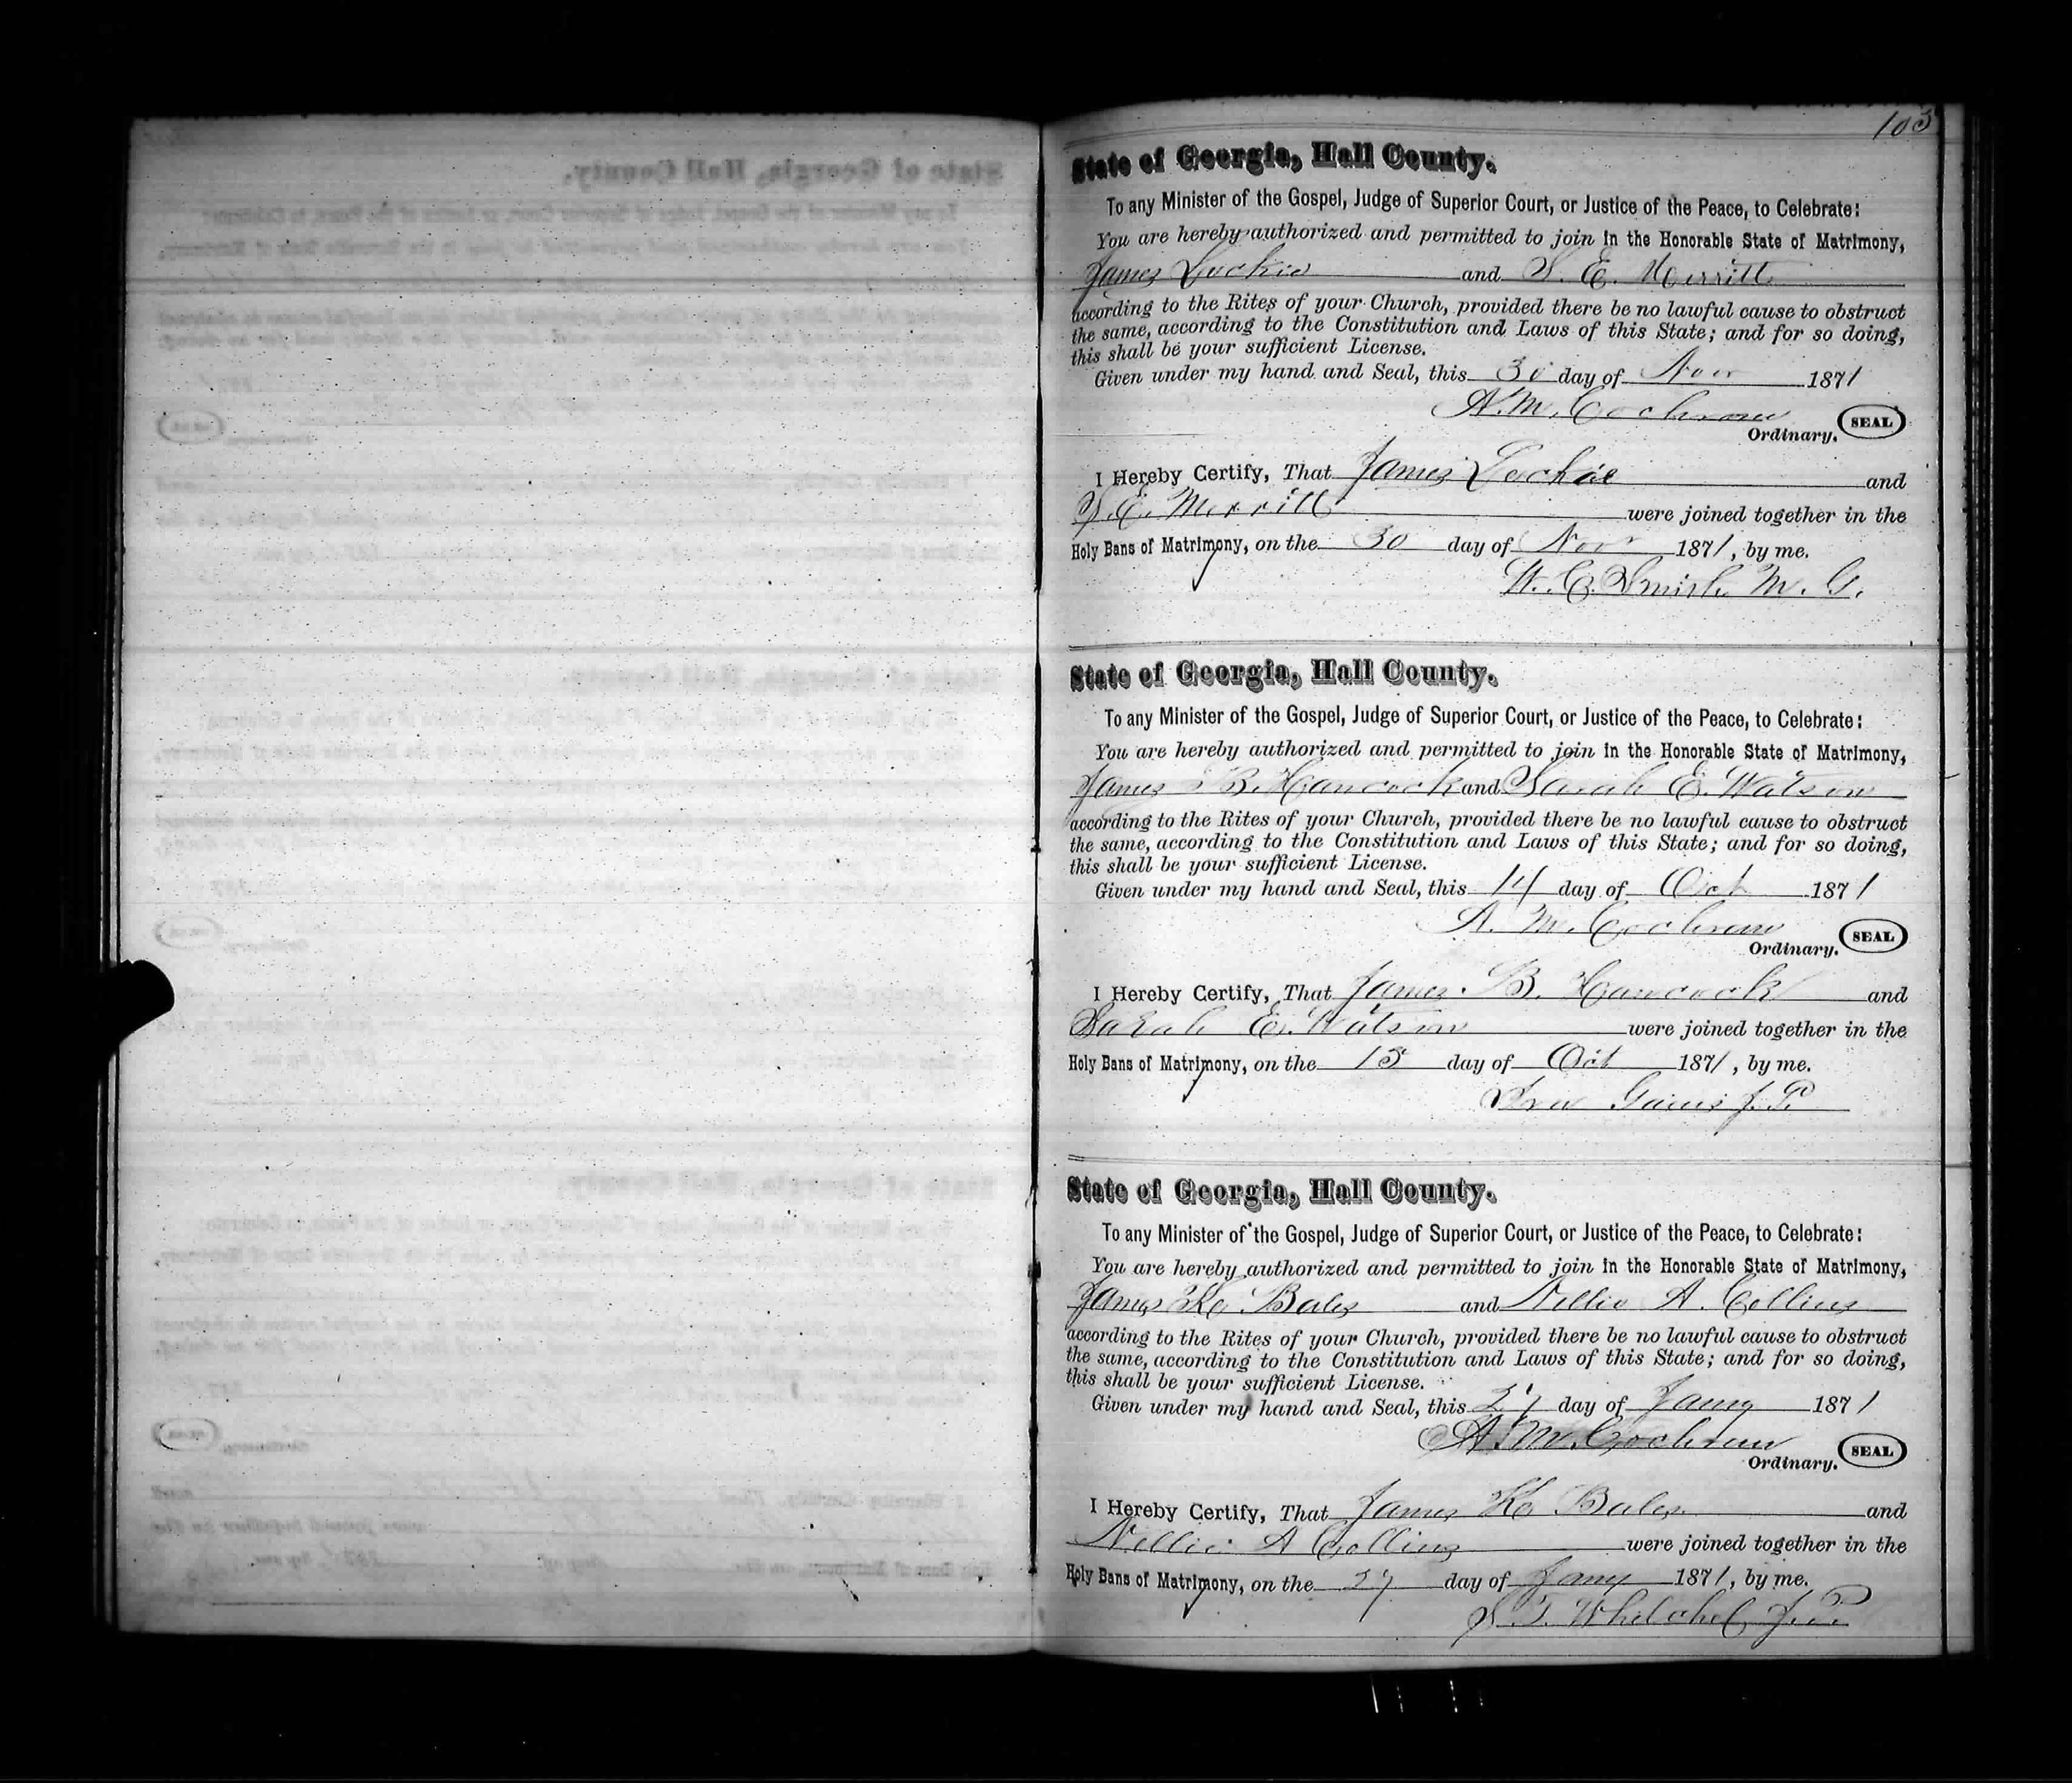 103
State of Georgia, Hall County.
To any Minister of the Gospel, Judge of Superior Court, or Justice of the Peace, to Celebrate:
You are hereby authorized and permitted to join in the Honorable State of Matrimony,
James Lockie and S. E. Merritt
according to the Rites of your Church, provided there be no lawful cause to obstruct
the same, according to the Constitution and Laws of this State; and for so doing,
this shall be your sufficient License.
Given under my hand and Seal, this 30 day of Nov 1871
A. M. Cochran SEAL
Ordinary.
I Hereby Certify, That James Lockie and
S. E. Merritt were joined together in the
Holy Bans of Matrimony, on the 30 day of Nov 1871, by me.
W. C. Smith M. G.
State of Georgia, Hall County.
To any Minister of the Gospel, Judge of Superior Court, or Justice of the Peace, to Celebrate:
You are hereby authorized and permitted to join in the Honorable State of Matrimony,
James B. Hancock and Sarah E. Watson
according to the Rites of your Church, provided there be no lawful cause to obstruct
the same, according to the Constitution and Laws of this State; and for so doing,
this shall be your sufficient License.
Given under my hand and Seal, this 14 day of Oct 1871
A. M. Cochran SEAL
Ordinary.
I Hereby Certify, That James B. Hancock and
Sarah E. Watson were joined together in the
Holy Bans of Matrimony, on the 15 day of Oct 1871, by me.
J. P.
State of Georgia, Hall County.
To any Minister of the Gospel, Judge of Superior Court, or Justice of the Peace, to Celebrate:
You are hereby authorized and permitted to join in the Honorable State of Matrimony,
James K. Bales and Nellie A. Collins
according to the Rites of your Church, provided there be no lawful cause to obstruct
the same, according to the Constitution and Laws of this State; and for so doing,
this shall be your sufficient License.
Given under my hand and Seal, this 27 day of Jany 1871
A. M. Cochran SEAL
Ordinary.
I Hereby Certify, That James K. Bales and
Nellie A Collins were joined together in the
Holy Bans of Matrimony, on the 27 day of Jany 1871, by me.
S. T. Whelchel J. P.